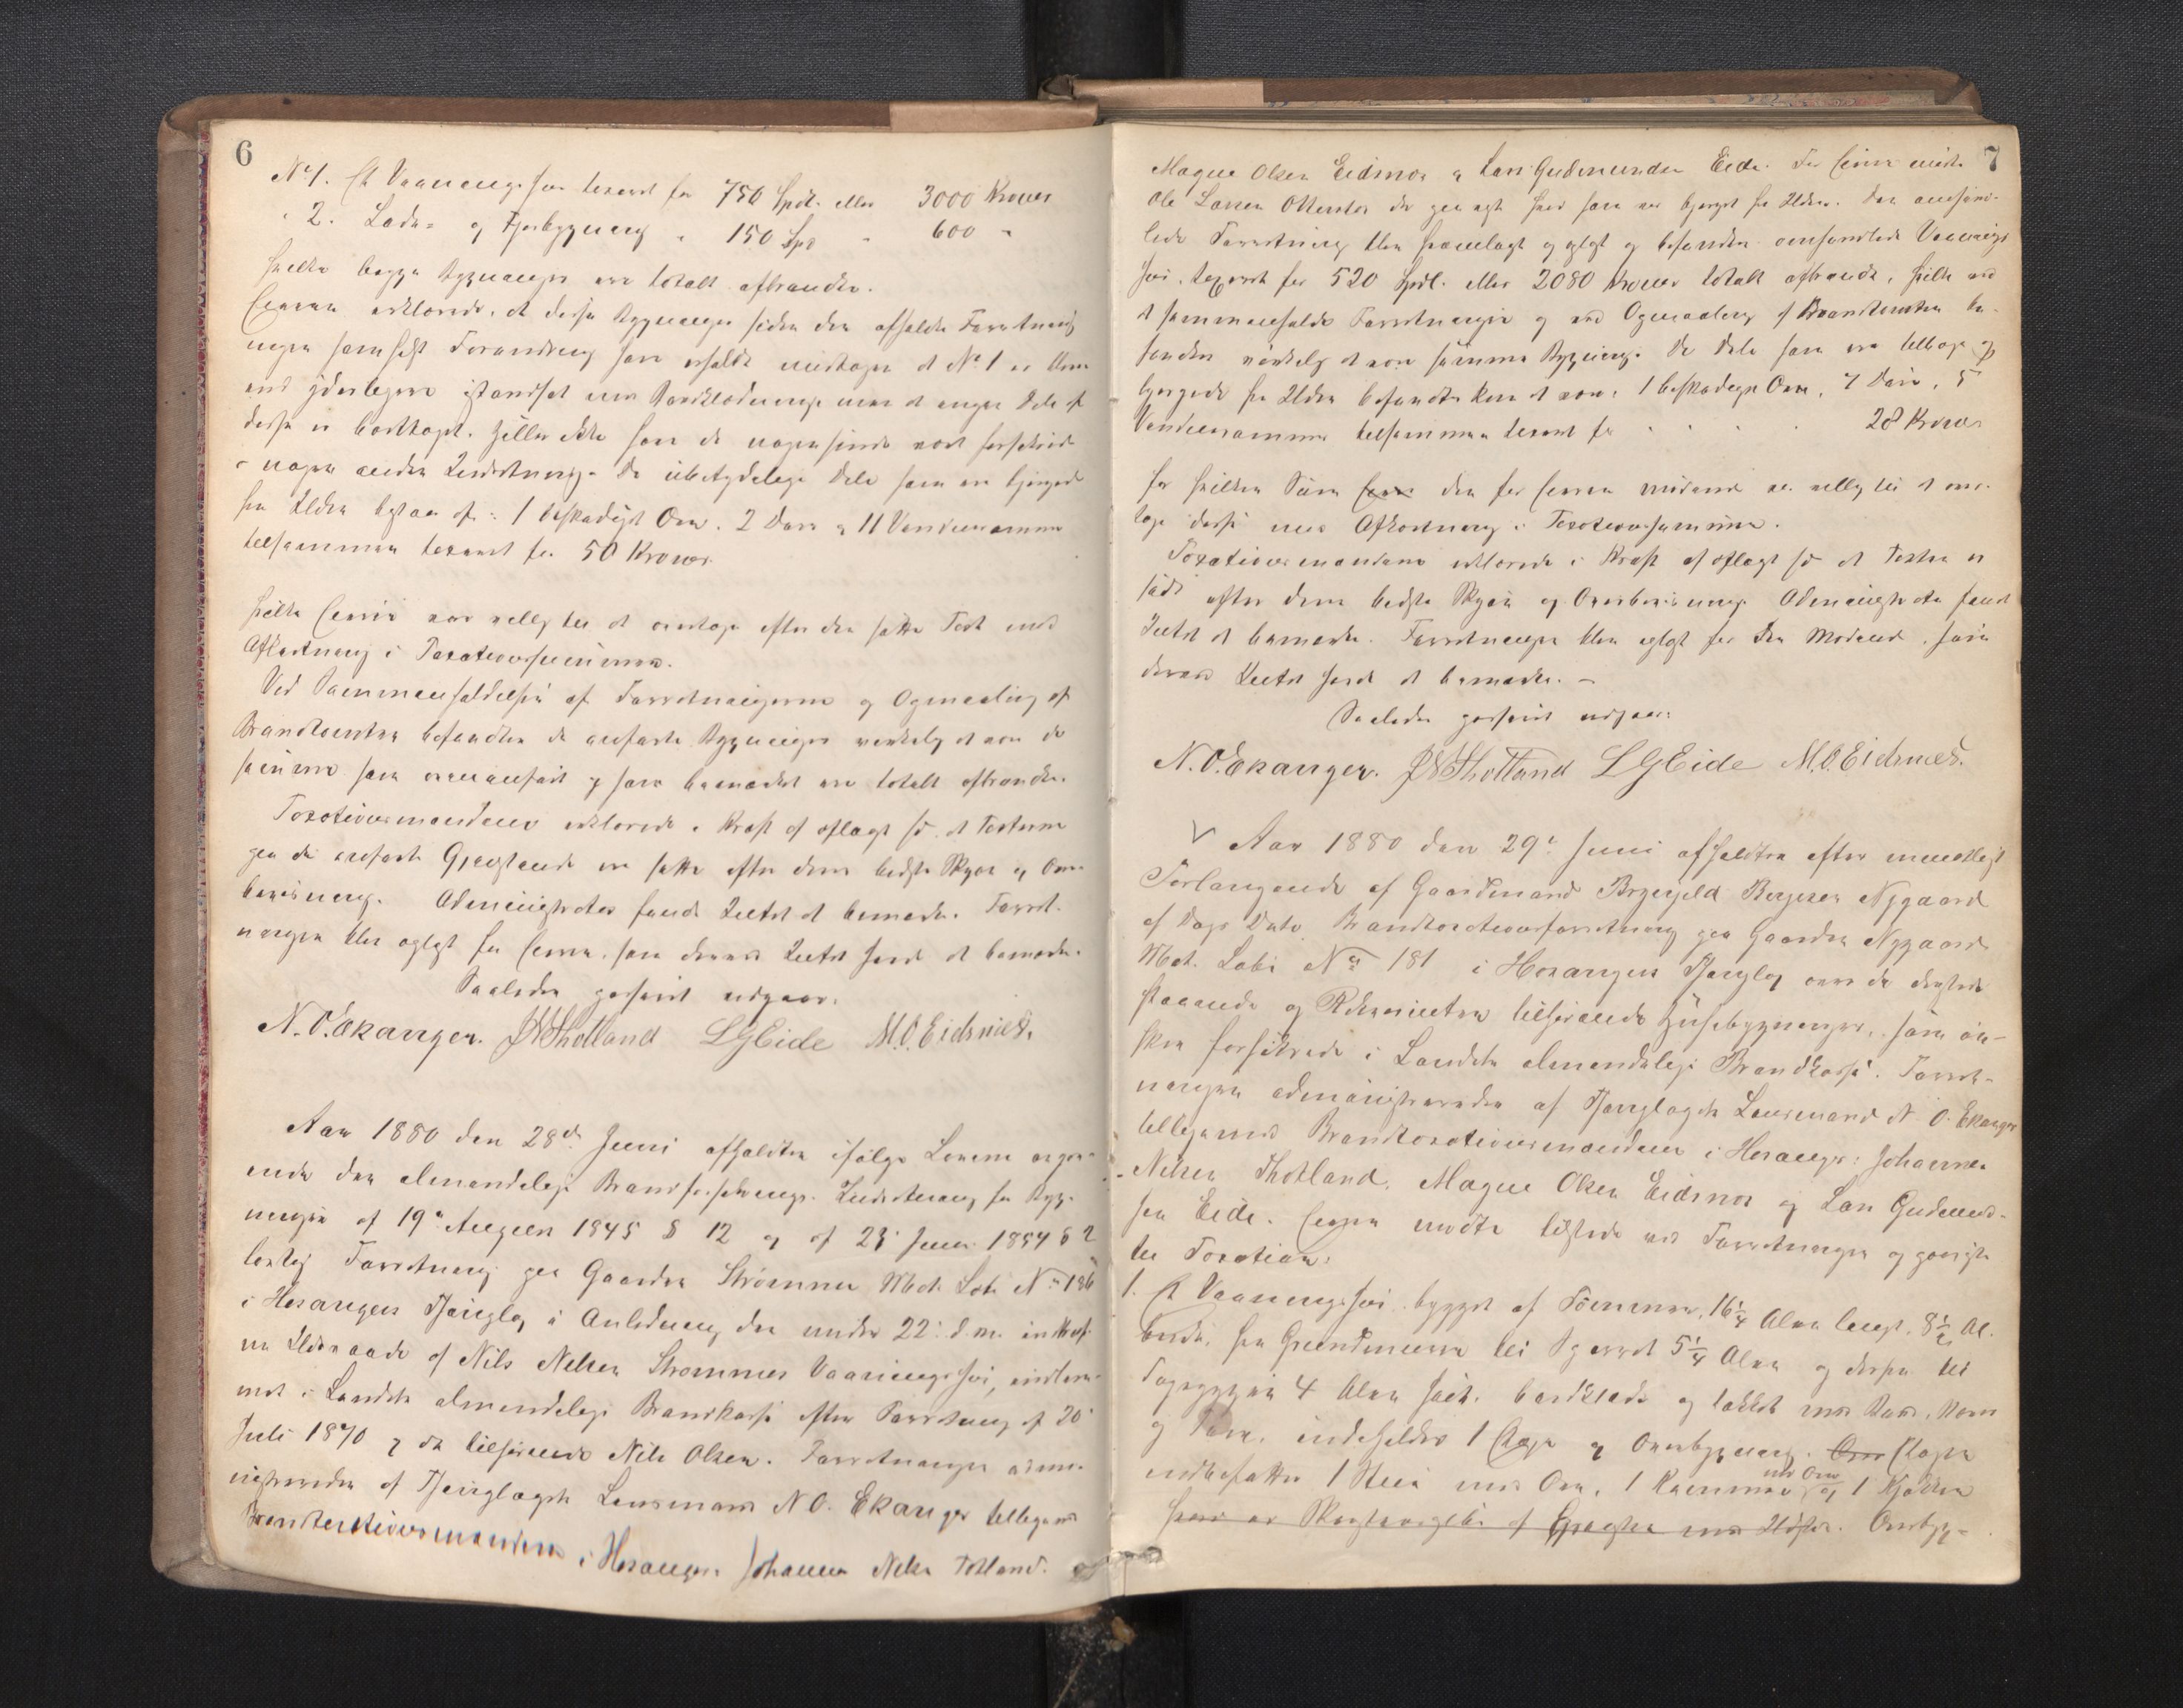 6
No 1. Et Vaaningshus taxeret for 750 Spdl. eller 3000 Kroner
" 2. Lade- og Fjøsbygning " 150 Spd " 600 "
hvilke begge Bygninger ere totalt afbrændte.
Eieren erklærede, at disse Bygninger siden den afholdte Forretning
ingen saadan Forandring have erholdt undtagen at No 1 er bleven
end yderligere istandsat med Bordklædning men at ingen Dele af
disse er borttaget. Heller ikke have de nogensinde været forsikret
i nogen anden Indretning. De ubetydelige Dele som ere bjergede
fra Ilden bestaar af: 1 beskadiget Ovn, 2 Døre og 11 Vinduerammer
tilsammen taxeret for 50 Kroner.
hvilke Eieren var villig til at modtage efter den satte Taxt med
Afkortning i Taxationssummen.
Ved Sammenholdelse af Forretningerne og Opmaaling af
Brandtomten befandtes de anførte Bygninger virkelig at være de
samme som ovenanført og som bemærket ere totalt afbrændte.
Taxationsmændene erklærede i Kraft af aflagt Ed at Taxterne
paa de anførte Gjenstande ere satte efter deres bedste Skjøn og Over-
bevisning. Administrator fandt Intet at bemærke. Forret-
ningen blev oplæst for Eieren, som derved Intet havde at bemærke.
Saaledes passeret udgaar.
N. O. Ekanger. J N Thotland L G Eide M. O. Eidsnes.
Aar 1880 den 28de Juni afholdtes ifølge Lovene angaa-
ende den almindelige Brandforsikrings-Indretning for Byg-
ninger af 19de August 1845 § 12 og af 23 Juni 1854 § 2
lovlig Forretning paa Gaarden Strømmen Mat. Løbe No 186
i Hosangers Thinglag i Anledning den under 22de d. m. indtruf-
ne Ildsvaade af Nils Nilsen Strømmes Vaaningshus, indtem-
met i Landets almindelige Brandkasse efter Forretning af 20
Juli 1870 og da tilhørende Nils Olsen. Forretningen admi-
nistreredes af Thinglagets Lensmand N O. Ekanger tilligemed
Brandtaxtationsmændene i Hosanger: Johannes Nilsen Totland.
7
Magne Olsen Eidsnes og Lars Gudmundsen Eide. For Eieren mødte
Ole Larsen der paa agt havde som var bjerget fra Ilden. Den omhand-
lede Forretning blev fremlagt og oplæst og befandtes omhandlede Vaanings-
hus, taxeret for 520 Spdl. eller 2080 Kroner totalt afbrændt, hvilke ved
at sammenholde Forretningen og ved Opmaaling af Brandtomten be-
fandtes virkelig at være samme Bygning. De Dele som ere tilbage og
bjergede fra Ilden befandtes kun at være: 1 beskadiget Ovn, 7 Døre, 5
Vinduerammer tilsammen taxeret for . . . . 28 Kroner
for hvilken Sum den for Eieren mødende er villig til at mod-
tage disse med Afkortning i Taxationssummen.
Taxationsmændene erklærede i Kraft af aflagt Ed at Taxten er
sat efter deres bedste Skjøn og Overbevisning. Administrator fandt
Intet at bemærke. Forretningen blev oplæst for den Mødende, som
derved Intet havde at bemærke. —
Saaledes passeret udgaar:
N. O. Ekanger. J N Thotland L G Eide M. O. Eidsnes.
V Aar 1880 den 29de Juni afholdtes efter mundtligt
Forlangende af Gaardmand Brynjeld Børgesen Nygaard
af Dags Dato Brandtaxationsforretning paa Gaarden Nygaard
Mat. Løbe No 181 i Hosangers Thinglag over de dersteds
staaende og Rekvirenten tilhørende Husebygninger, som øn-
skes forsikrede i Landets almindelige Brandkasse. Forret-
ningen administreredes af Thinglagets Lensmand N. O. Ekanger
tilligemed Brandtaxationsmændene i Hosanger: Johannes
Nilsen Thotland, Magne Olsen Eidsnes og Lars Gudmund-
sen Eide. Eieren mødte tilstede ved Forretningen og paaviste
til Taxation:
1. Et Vaaningshus bygget af Tømmer, 16 1/4 Alen langt, 8 1/2 Al.
bredt, fra Grundmuren til Sperret 5 1/4 Alen og derfra til
Tagryggen 4 Alen høit, bordklædt og tækket med Bord, Næver
og Torv, indeholder 1 Etage og Overbygning. Etagen
indbefatter 1 Stue med Ovn, 1 Kammer med Ovn og 1 Kjøkken
hvor er Skorsteenspibe af Graasten med Ildsted. Overbyg-